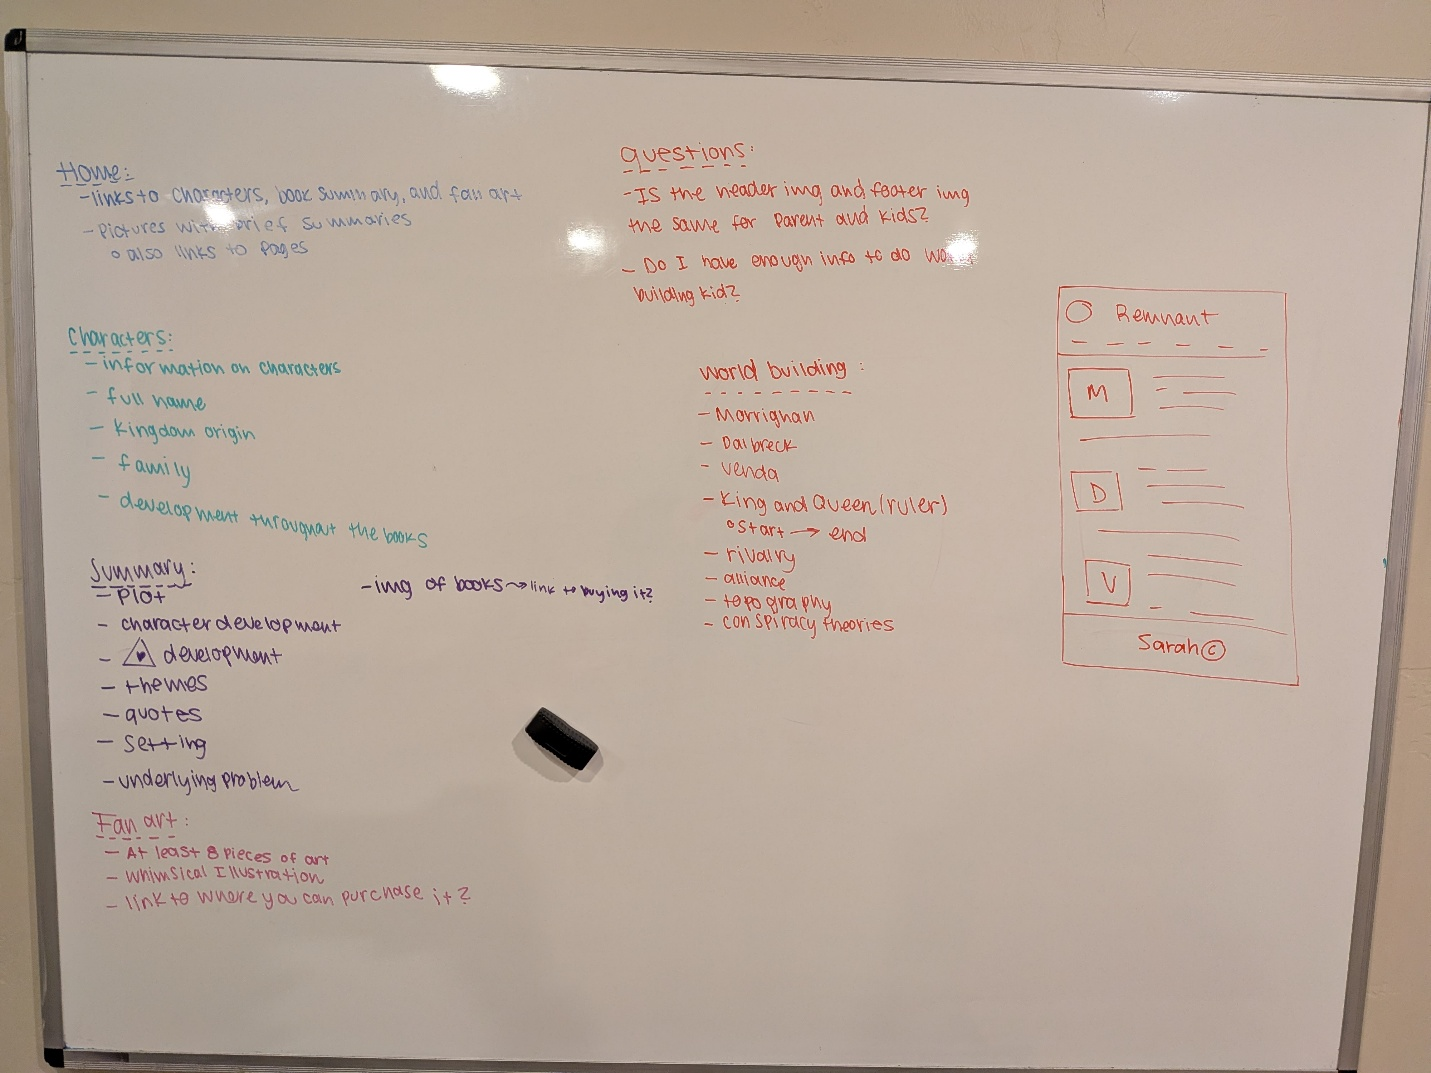 Home:
- links to characters, book summary, and fan art
- Pictures with brief summaries
o also links to pages
Characters:
- information on characters
- full name
- Kingdom origin
- family
- development throughout the books
Summary:
- Plot
- img of books → link to buying it?
- character development
- development
- themes
- quotes
- setting
- underlying problem
Fan art:
- At least 8 pieces of art
- Whimsical Illustration
- link to where you can purchase it?
Questions:
- Is the header img and footer img
the same for Parent and kids?
- Do I have enough info to do
building kid?
World building:
- Morrighan
- Dalbreck
- Venda
- King and Queen (ruler)
o start → end
- rivalry
- alliance
- topography
- conspiracy theories
Remnant
M
D
V
Sarah ©